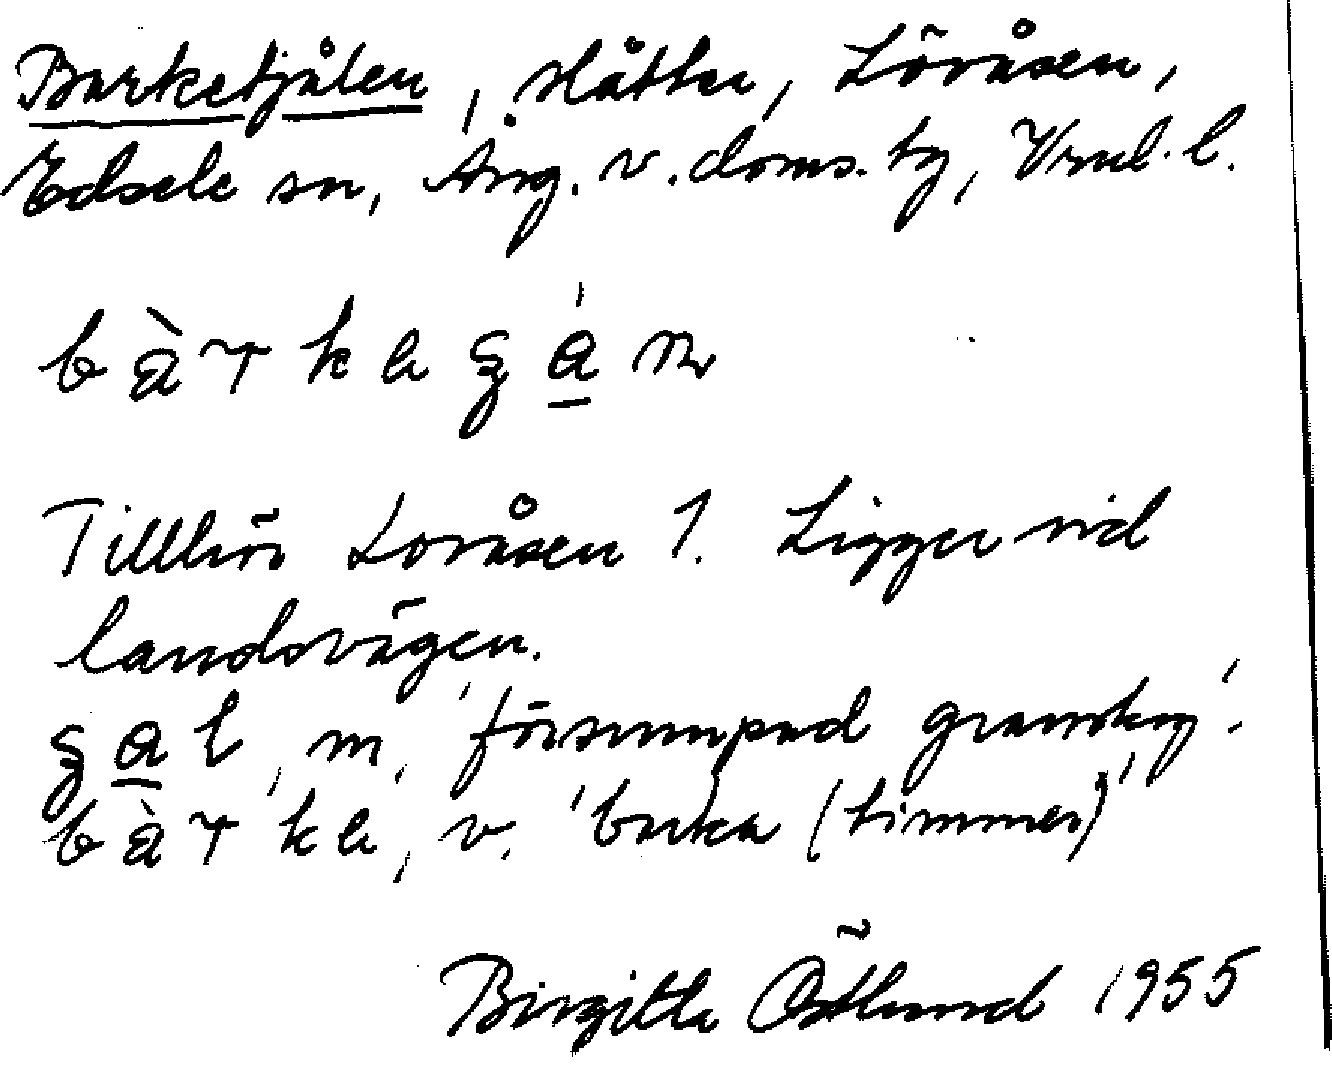 Barketjålen, slåtter, Lövåsen,
Edsele sn, Ång. v. doms. tg, Vrnl. l.
Tillhör Lovåsen 1. Ligger vid
landsvägen.
m, 'försumpad granskog'.
v. 'barka (timmer)'
Birgitta Östlund 1955